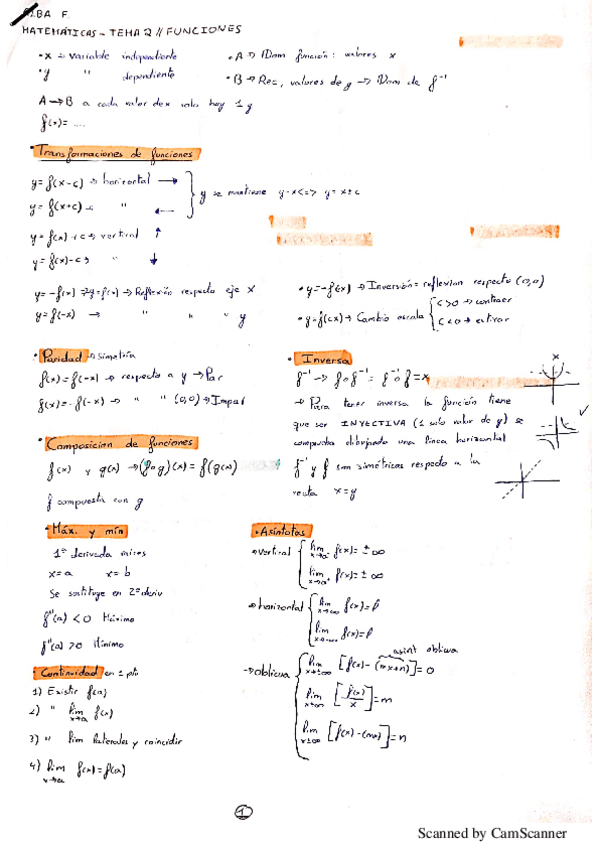 F.
MATEMÁTICAS - TEMA 2 // FUNCIONES
• x → variable independiente
• y " dependiente
• A → Dom función: valores x
• B → Rec, valores de y → Dom de f⁻¹
A → B a cada valor de x solo hay 1 y
f(x) = ....
Transformaciones de funciones
y = f(x-c) → horizontal →
y = f(x+c) → " ←
y se mantiene
y = f(x)+c → vertical ↑
y = f(x)-c → " ↓
→ Reflexión respecto eje x
y = f(-x) → " " " y
• y = -f(-x) → Inversión = reflexion respecto (0,0)
→ Cambio escala
c>0 → contraer
c<0 → estirar
• Paridad → Simetría
f(x) = f(-x) → respecto a y → Par
f(x) = -f(-x) → " " (0,0) → Impar
• Inversa
f⁻¹ → f∘f⁻¹ = f⁻¹∘f = x
→ Para tener inversa la función tiene
que ser INYECTIVA (1 solo valor de y) se
comprueba dibujando una linea horizontal
f⁻¹ y f son simétricas respecto a la
recta x=y
• Composición de funciones
f(x) y g(x) → (f∘g)(x) = f(g(x)
f compuesta con g
• Máx. y mín
1ª derivada raíces
x=a x=b
Se sustituye en 2ª deriv
f''(a) < 0 Máximo
f''(a) > 0 Mínimo
• Asíntotas
→ vertical
lim x→a⁻ f(x) = ±∞
lim x→a⁺ f(x) = ±∞
→ horizontal
lim x→∞ f(x) = l
lim x→-∞ f(x) = l
asint oblicua
→ oblicua
lim x→±∞ [f(x) - (mx+n)] = 0
lim x→±∞ [f(x)/x] = m
lim x→±∞ [f(x) - (mx)] = n
• Continuidad en 1 pto
1) Existir f(a)
2) " lim x→a f(x)
3) " lim laterales y coincidir
4) lim x→a f(x) = f(a)
1
Scanned by CamScanner